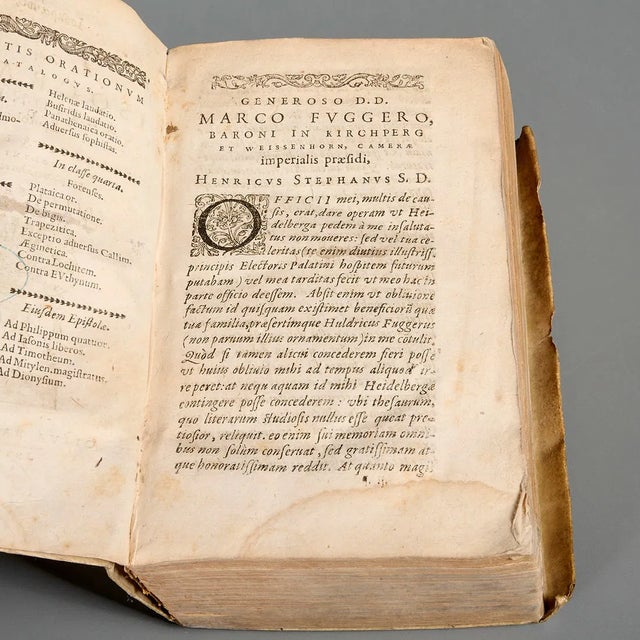 TIS ORATIONVM
ATALOGVS.
Helenæ laudatio.
Busiridis laudatio.
Panathenaica oratio.
Aduersus sophistas.
In classe quarta.
Forenses.
Plataica or.
De permutatione.
De bigis.
Trapezitica.
Exceptio aduersus Callim.
Æginetica.
Contra Lochitem.
Contra Euthynum.
Eiusdem Epistolæ.
Ad Philippum quatuor.
Ad Iasonis liberos.
Ad Timotheum.
Ad Mitylen. magistratus.
Ad Dionysium.
GENEROSO D.D.
MARCO FVGGERO,
BARONI IN KIRCHPERG
ET WEISSENHORN, CAMERÆ
imperialis præsidi,
HENRICVS STEPHANVS S. D.
OFFICII mei, multis de cau-
sis, erat, dare operam vt Hei-
delberga pedem à me insaluta-
tus non moueres: sed vel tua ce-
leritas (te enim diutius illustriss.
principis Electoris Palatini hospitem futurum
putabam) vel mea tarditas fecit vt meo hac in
parte officio deessem. Absit enim vt obliuione
factum id quisquam existimet beneficiorū quæ
tua familia, præsertimque Huldricus Fuggerus
(non paruum illius ornamentum) in me cōtulit.
Quòd si tamen alicui concederem fieri posse
vt huius obliuio mihi ad tempus aliquod ir-
reperet: at nequaquam id mihi Heidelbergæ
contingere posse concederem: vbi thesaurum,
quo literarum studiosis nullus esse queat pre-
tiosior, reliquit. eo enim sui memoriam omni-
bus non solùm conseruat, sed gratissimam at-
que honoratissimam reddit. At quanto magis